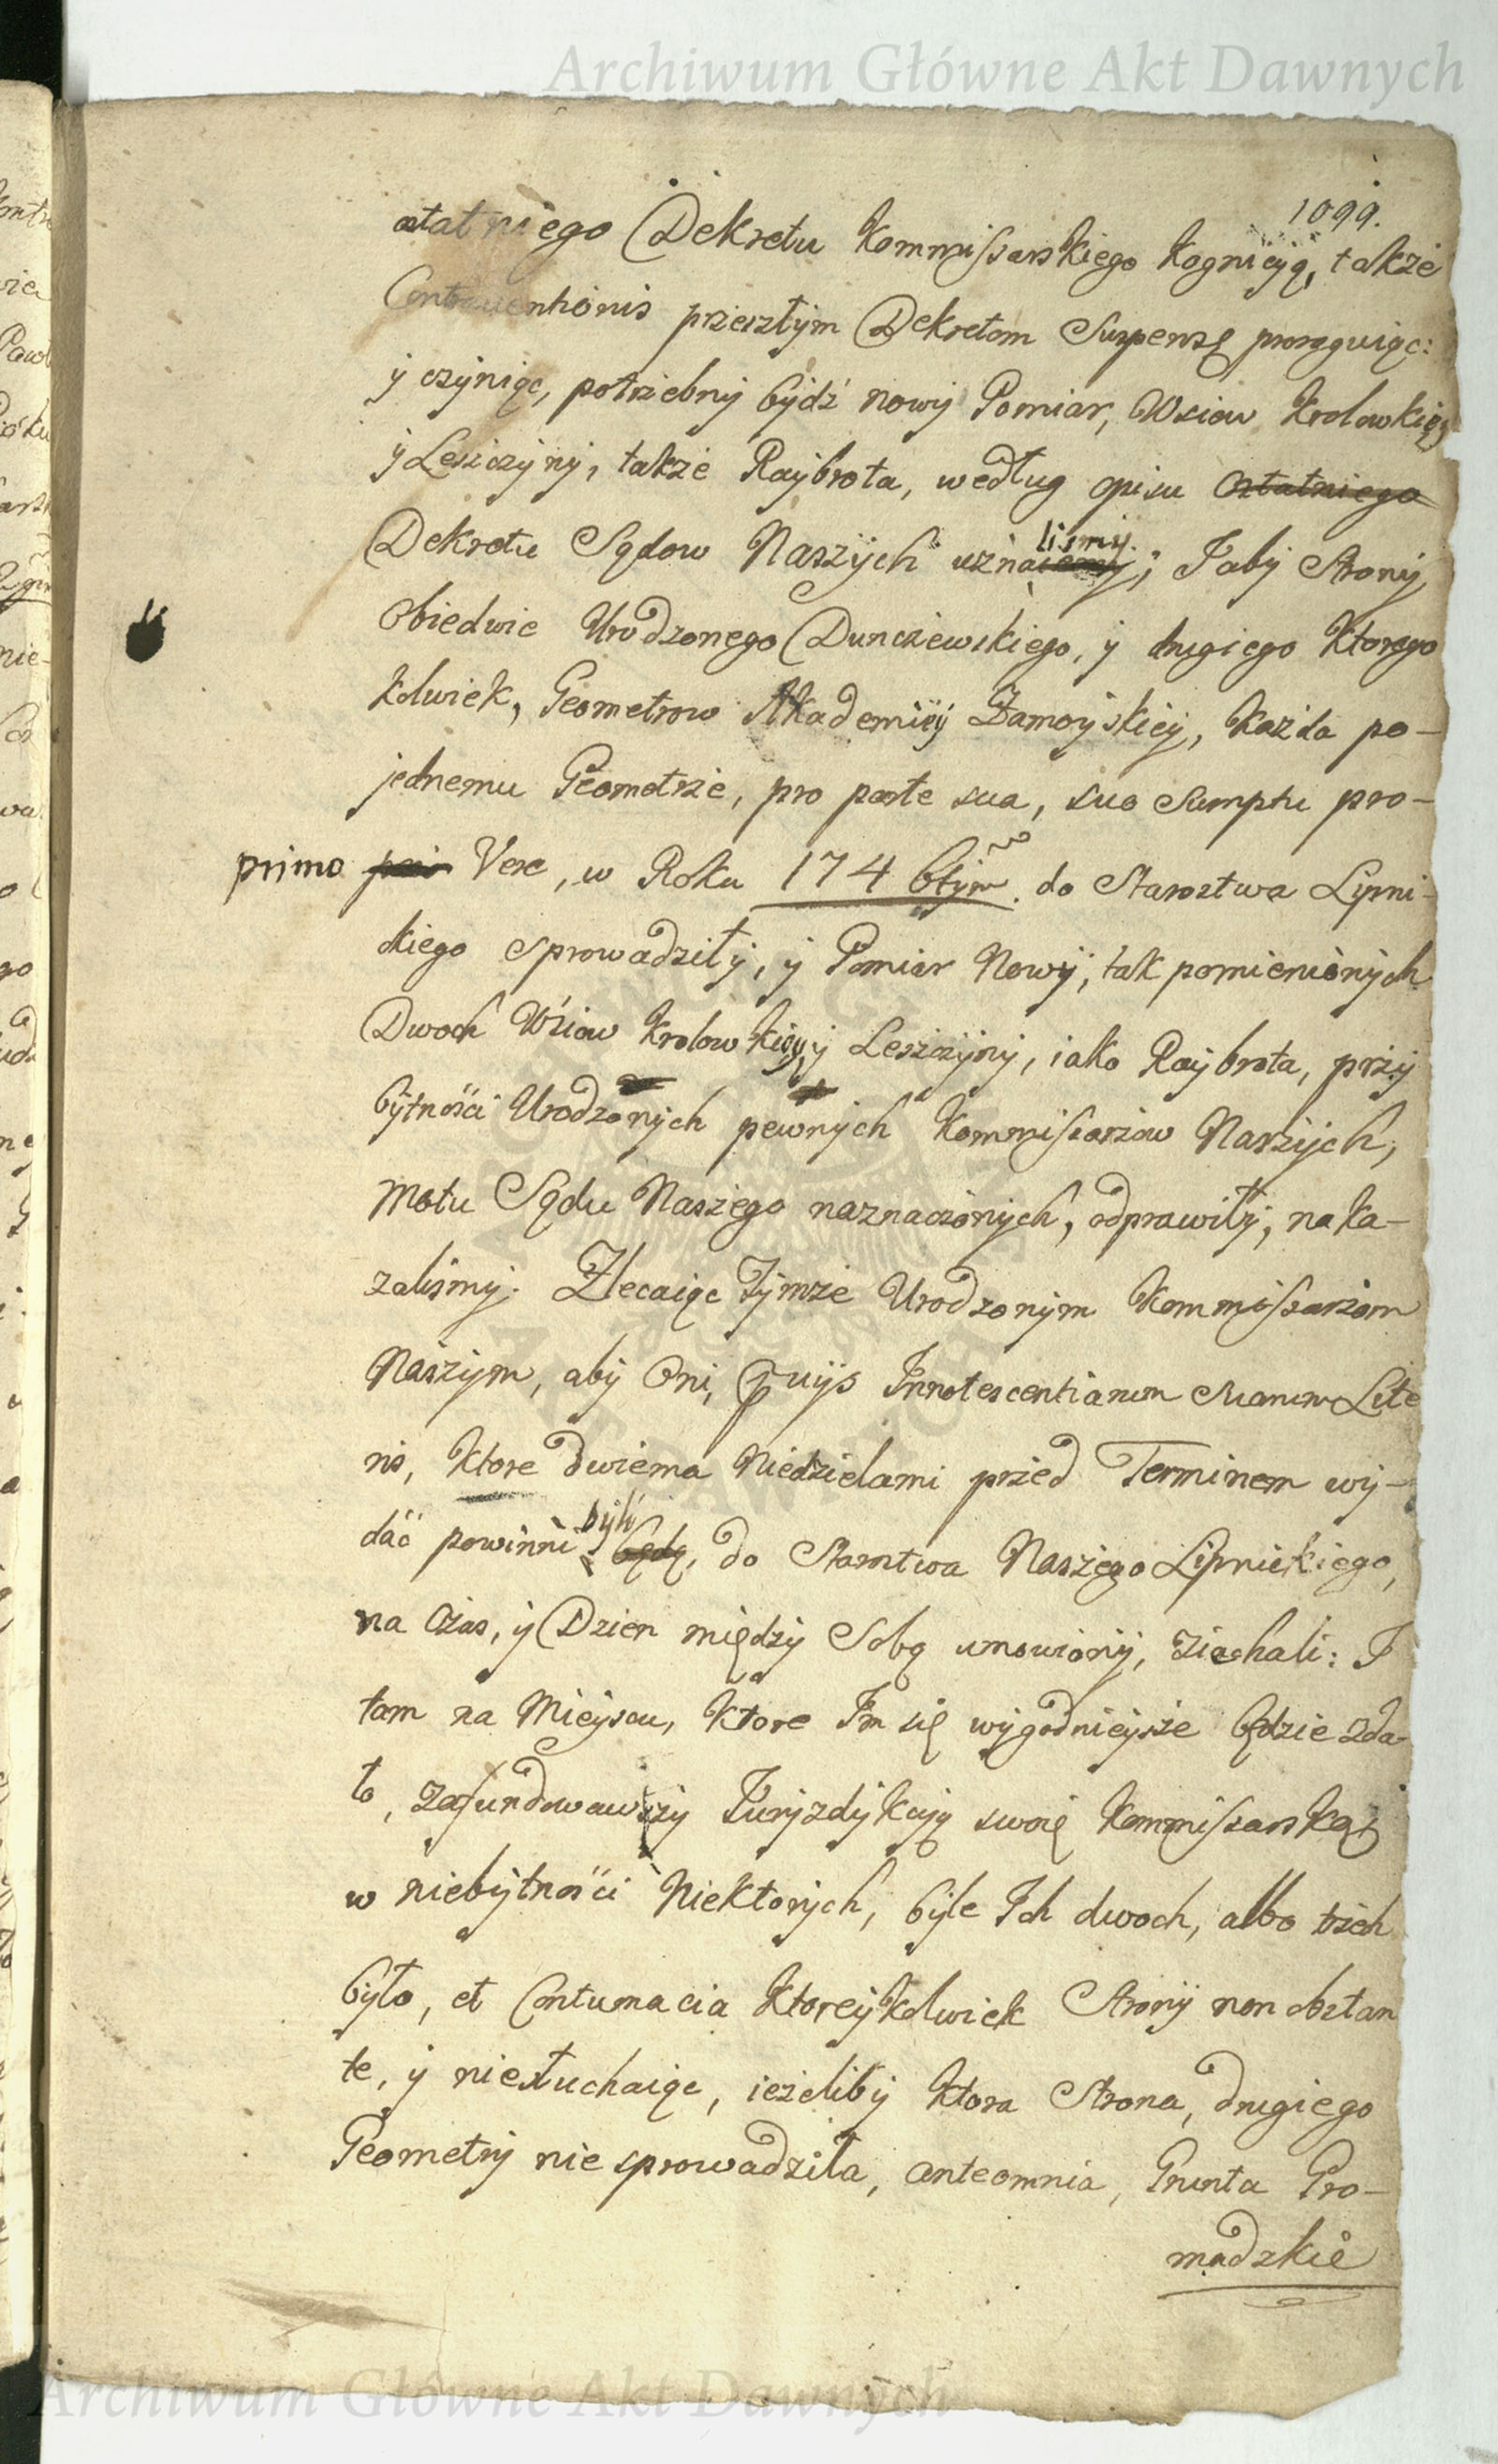 Archiwum Główne Akt Dawnych
1099.
ostatniego Dekretu Kommissarskiego Kognicyą, także
Contraventionis przeszłym Dekretom Suspensę prorogując:
y czyniąc, potrzebny bydź nowy Pomiar, Wsiow Krolowkiey
y Leszczyny, także Raybrota, według opisu ostatniego
Dekretu Sądow Naszych uznaliśmy; I aby Strony
obiedwie Urodzonego Dunczewskiego, y drugiego ktorego
kolwiek, Geometrow Akademiy Zamoyskiey, każda po-
jednemu Geometrze, pro parte sua, suo Sumptu pro-
primo Vere, w Roku 1746tym do Starostwa Lipni-
ckiego sprowadziły, y Pomiar Nowy, tak pomienionych
Dwoch Wsiow Krolowkiey, y Leszczyny, iako Raybrota, przy
bytności Urodzonych pewnych Kommissarzow Naszych,
motu Sądu Naszego naznaczonych, odprawiły, naka-
zaliśmy. Zlecaiąc Tymże Urodzonym Kommissarzom
Naszym, aby Oni, praevijs Innotescentiarum suarum Lite
ris, ktore dwiema Niedzielami przed Terminem wy-
dać powinni byli będą, do Starostwa Naszego Lipnickiego,
na czas, y Dzien między Sobą umowiony, ziachali: I
tam na Mieyscu, ktore Im się wygodnieysze będzie zda-
ło, zafundowawszy Juryzdykcyą swoię Kommissarską,
w niebytności Niektorych, byle Ich dwoch, albo trzech
było, et Contumacia ktoreykolwiek Strony non obstan
te, y niesłuchaiąc, ieżeliby ktora Strona, drugiego
Geometry nie sprowadziła, anteomnia, Grunta Gro-
madzkie
Archiwum Główne Akt Dawnych